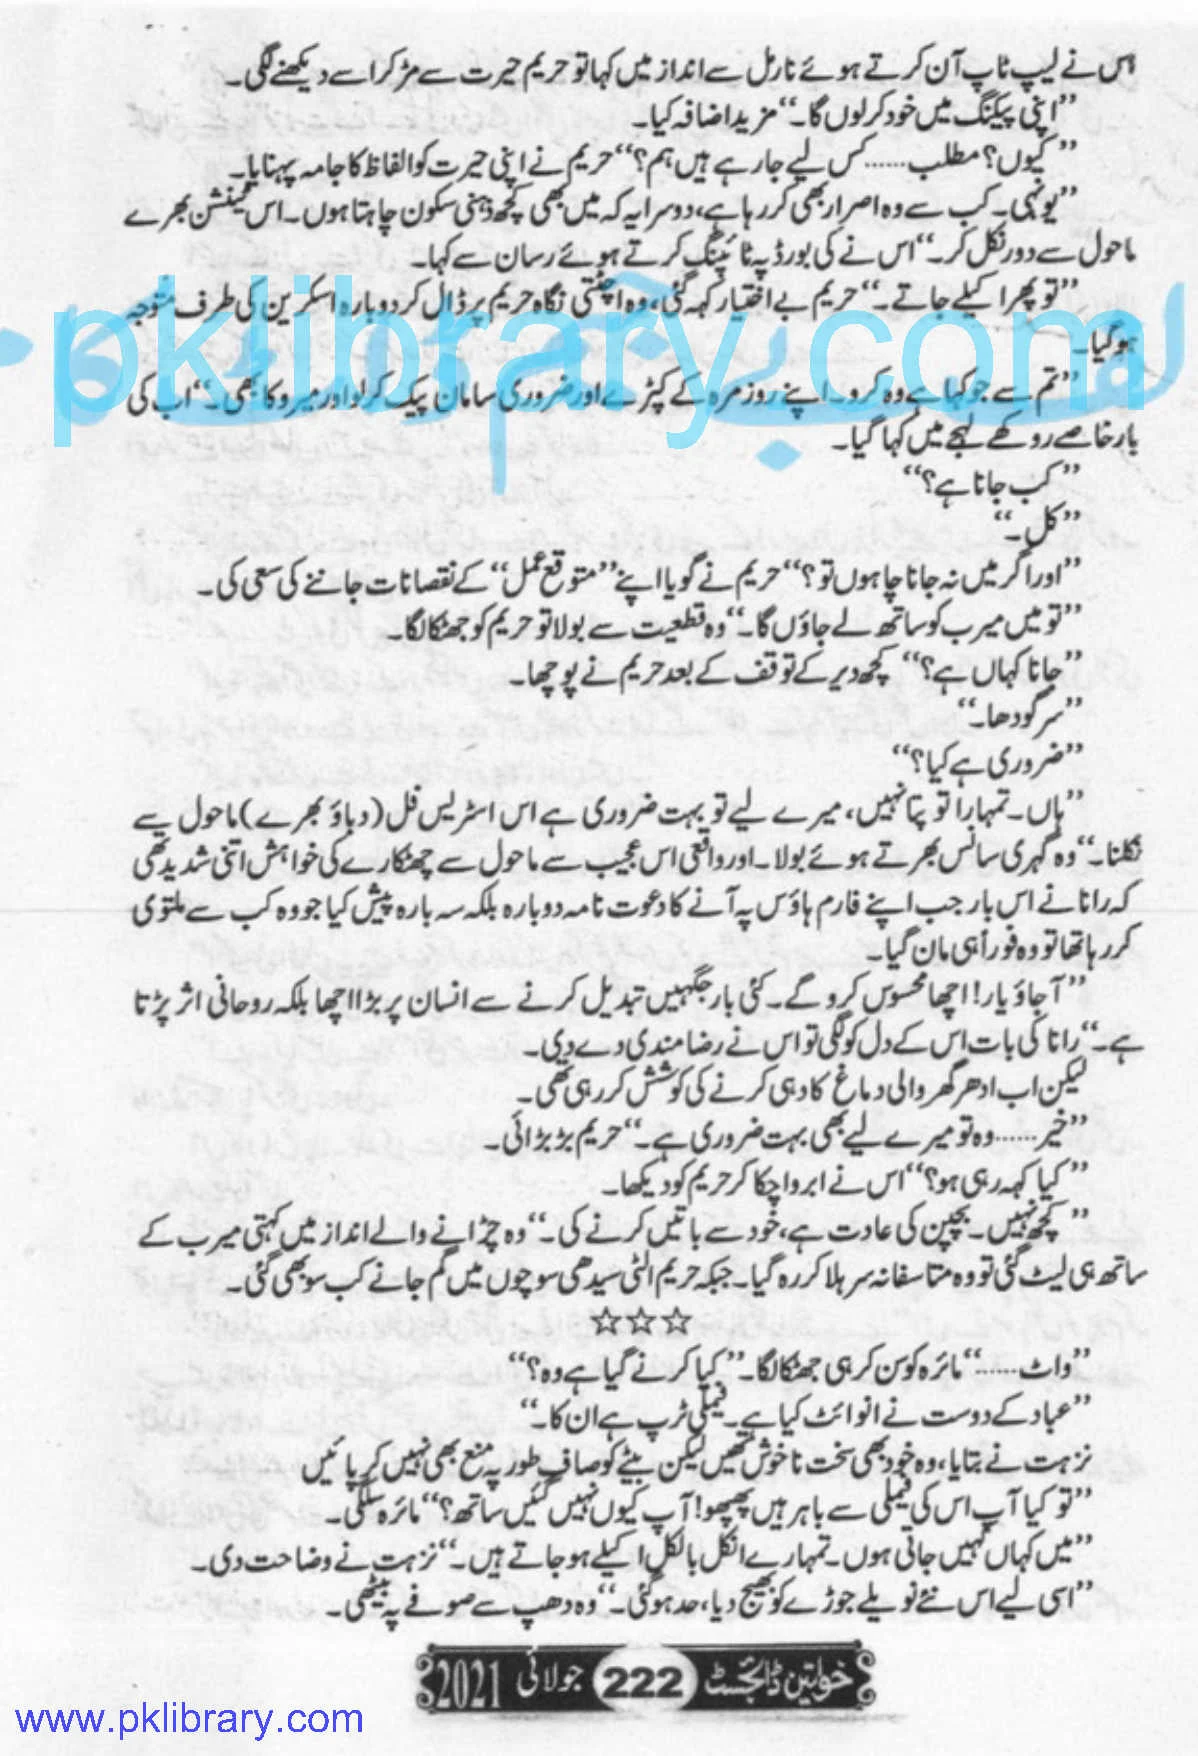 اس نے لیپ ٹاپ آن کرتے ہوئے نارمل سے انداز میں کہا تو حریم حیرت سے مڑ کر اسے دیکھنے لگی۔
”اپنی پیکنگ میں خود کر لوں گا۔“ مزید اضافہ کیا۔
”کیوں؟ مطلب...... کس لیے جا رہے ہیں ہم؟“ حریم نے اپنی حیرت کو الفاظ کا جامہ پہنایا۔
”یونہی۔ کب سے وہ اصرار بھی کر رہا ہے، دوسرا یہ کہ میں بھی کچھ ذہنی سکون چاہتا ہوں۔ اس ٹینشن بھرے
ماحول سے دور نکل کر۔“ اس نے کی بورڈ پہ ٹائپنگ کرتے ہوئے رسان سے کہا۔
”تو پھر اکیلے جاتے۔“ حریم بے اختیار کہہ گئی، وہ اچٹتی نگاہ حریم پر ڈال کر دوبارہ اسکرین کی طرف متوجہ
ہو گیا۔
”تم سے جو کہا ہے وہ کرو۔ اپنے روزمرہ کے کپڑے اور ضروری سامان پیک کر لو اور میرو کا بھی۔“ اب کی
بار خاصے روکھے لہجے میں کہا گیا۔
”کب جانا ہے؟“
”کل۔“
”اور اگر میں نہ جانا چاہوں تو؟“ حریم نے گویا اپنے ”متوقع عمل“ کے نقصانات جاننے کی سعی کی۔
”تو میں میرب کو ساتھ لے جاؤں گا۔“ وہ قطعیت سے بولا تو حریم کو جھٹکا لگا۔
”جانا کہاں ہے؟“ کچھ دیر کے توقف کے بعد حریم نے پوچھا۔
”سرگودھا۔“
”ضروری ہے کیا؟“
”ہاں۔ تمہارا تو پتا نہیں، میرے لیے تو بہت ضروری ہے اس اسٹریس فل (دباؤ بھرے) ماحول سے
نکلنا۔“ وہ گہری سانس بھرتے ہوئے بولا۔ اور واقعی اس عجیب سے ماحول سے چھٹکارے کی خواہش اتنی شدید تھی
کہ رانا نے اس بار جب اپنے فارم ہاؤس پہ آنے کا دعوت نامہ دوبارہ بلکہ سہ بارہ پیش کیا جو وہ کب سے ملتوی
کر رہا تھا تو وہ فوراً ہی مان گیا۔
”آ جاؤ یار! اچھا محسوس کرو گے۔ کئی بار جگہیں تبدیل کرنے سے انسان پر بڑا اچھا بلکہ روحانی اثر پڑتا
ہے۔“ رانا کی بات اس کے دل کو لگی تو اس نے رضا مندی دے دی۔
لیکن اب ادھر گھر والی دماغ کا دہی کرنے کی کوشش کر رہی تھی۔
”خیر...... وہ تو میرے لیے بھی بہت ضروری ہے۔“ حریم بڑبڑائی۔
”کیا کہہ رہی ہو؟“ اس نے ابرو اچکا کر حریم کو دیکھا۔
”کچھ نہیں۔ بچپن کی عادت ہے، خود سے باتیں کرنے کی۔“ وہ چڑانے والے انداز میں کہتی میرب کے
ساتھ ہی لیٹ گئی تو وہ متاسفانہ سر ہلا کر رہ گیا۔ جبکہ حریم الٹی سیدھی سوچوں میں گم جانے کب سو بھی گئی۔
☆☆☆
”واٹ......“ مائرہ کو سن کر ہی جھٹکا لگا۔ ”کیا کرنے گیا ہے وہ؟“
”عباد کے دوست نے انوائٹ کیا ہے۔ فیملی ٹرپ ہے ان کا۔“
نزہت نے بتایا، وہ خود بھی سخت ناخوش تھیں لیکن بیٹے کو صاف طور پہ منع بھی نہیں کر پائیں
”تو کیا آپ اس کی فیملی سے باہر ہیں پھپھو! آپ کیوں نہیں گئیں ساتھ؟“ مائرہ سلگی۔
”میں کہاں کہیں جاتی ہوں۔ تمہارے انکل بالکل اکیلے ہو جاتے ہیں۔“ نزہت نے وضاحت دی۔
”اسی لیے اس نئے نویلے جوڑے کو بھیج دیا، حد ہو گئی۔“ وہ دھپ سے صوفے پہ بیٹھی۔
خواتین ڈائجسٹ 222 جولائی 2021
pklibrary.com
www.pklibrary.com